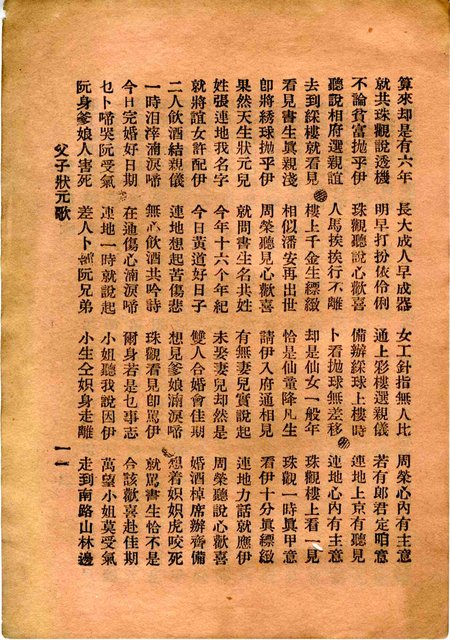 算來却是有六年　長大成人早成器　女工針指無人比　周榮心內有主意
就共珠觀說透機　明早打扮依伶俐　通上彩樓選親儀　若有郎君定咱意
不論貧富拋乎伊　珠觀聽說心歡喜　備辦綵球上樓時　連地上京有聽見
聽說相府選親誼　人馬挨挨行不離　卜看拋球無差移　連地心內有主意
去到綵樓就看見　樓上千金生縹緻　却是仙女一般年　珠觀樓上看一見
看見書生真親淺　相似潘安再出世　恰是仙童降凡生　珠觀一時真甲意
卽將綉球拋乎伊　周榮聽見心歡喜　請伊入府通相見　看伊十分真縹緻
果然天生狀元兒　就問書生名共姓　有無妻兒實說起　連地力話就應伊
姓張連地我名字　今年十六个年紀　未娶妻兒却然是　周榮聽說心歡喜
就將誼女許配伊　今日黃道好日子　雙人合婚會佳期　婚酒棹席辦齊備
二人飲酒結親儀　連地想起苦傷悲　想見爹娘滿淚啼　想着虎咬死
一時泪滓滿淚啼　無心飲酒共吟詩　珠觀看見卽罵伊　就罵書生恰不是
今日完婚好日期　在通傷心滿淚啼　爾身若是乜事志　今該歡喜赴佳期
乜卜啼哭阮受氣　連地一時就說起　小姐聽我說因伊　萬望小姐莫受氣
阮身爹娘人害死　差人卜阮兄弟　小生仝身走離　走到南路山林邊
父子狀元歌　一一